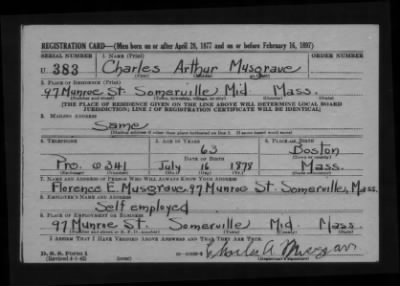 REGISTRATION CARD—(Men born on or after April 28, 1877 and on or before February 16, 1897)
SERIAL NUMBER 1. NAME (Print) ORDER NUMBER
U 383 Charles Arthur Musgrave
(First) (Middle) (Last)
2. PLACE OF RESIDENCE (Print)
97 Munroe St. Somerville Mid Mass.
(Number and street) (Town, township, village, or city) (County) (State)
[THE PLACE OF RESIDENCE GIVEN ON THE LINE ABOVE WILL DETERMINE LOCAL BOARD
JURISDICTION; LINE 2 OF REGISTRATION CERTIFICATE WILL BE IDENTICAL]
3. MAILING ADDRESS
Same
[Mailing address if other than place indicated on line 2. If same insert word same]
4. TELEPHONE 5. AGE IN YEARS 6. PLACE OF BIRTH
63 Boston
DATE OF BIRTH (Town or county)
Pro. July 16 1878 Mass.
(Exchange) (Number) (Mo.) (Day) (Yr.) (State or country)
7. NAME AND ADDRESS OF PERSON WHO WILL ALWAYS KNOW YOUR ADDRESS
Florence E. Musgrave 97 Munroe St. Somerville, Mass.
8. EMPLOYER'S NAME AND ADDRESS
Self employed
9. PLACE OF EMPLOYMENT OR BUSINESS
97 Munroe St. Somerville Mid. Mass.
(Number and street or R. F. D. number) (Town) (County) (State)
I AFFIRM THAT I HAVE VERIFIED ABOVE ANSWERS AND THAT THEY ARE TRUE.
D. S. S. Form 1
(Revised 4-1-42) Charles A Musgrave